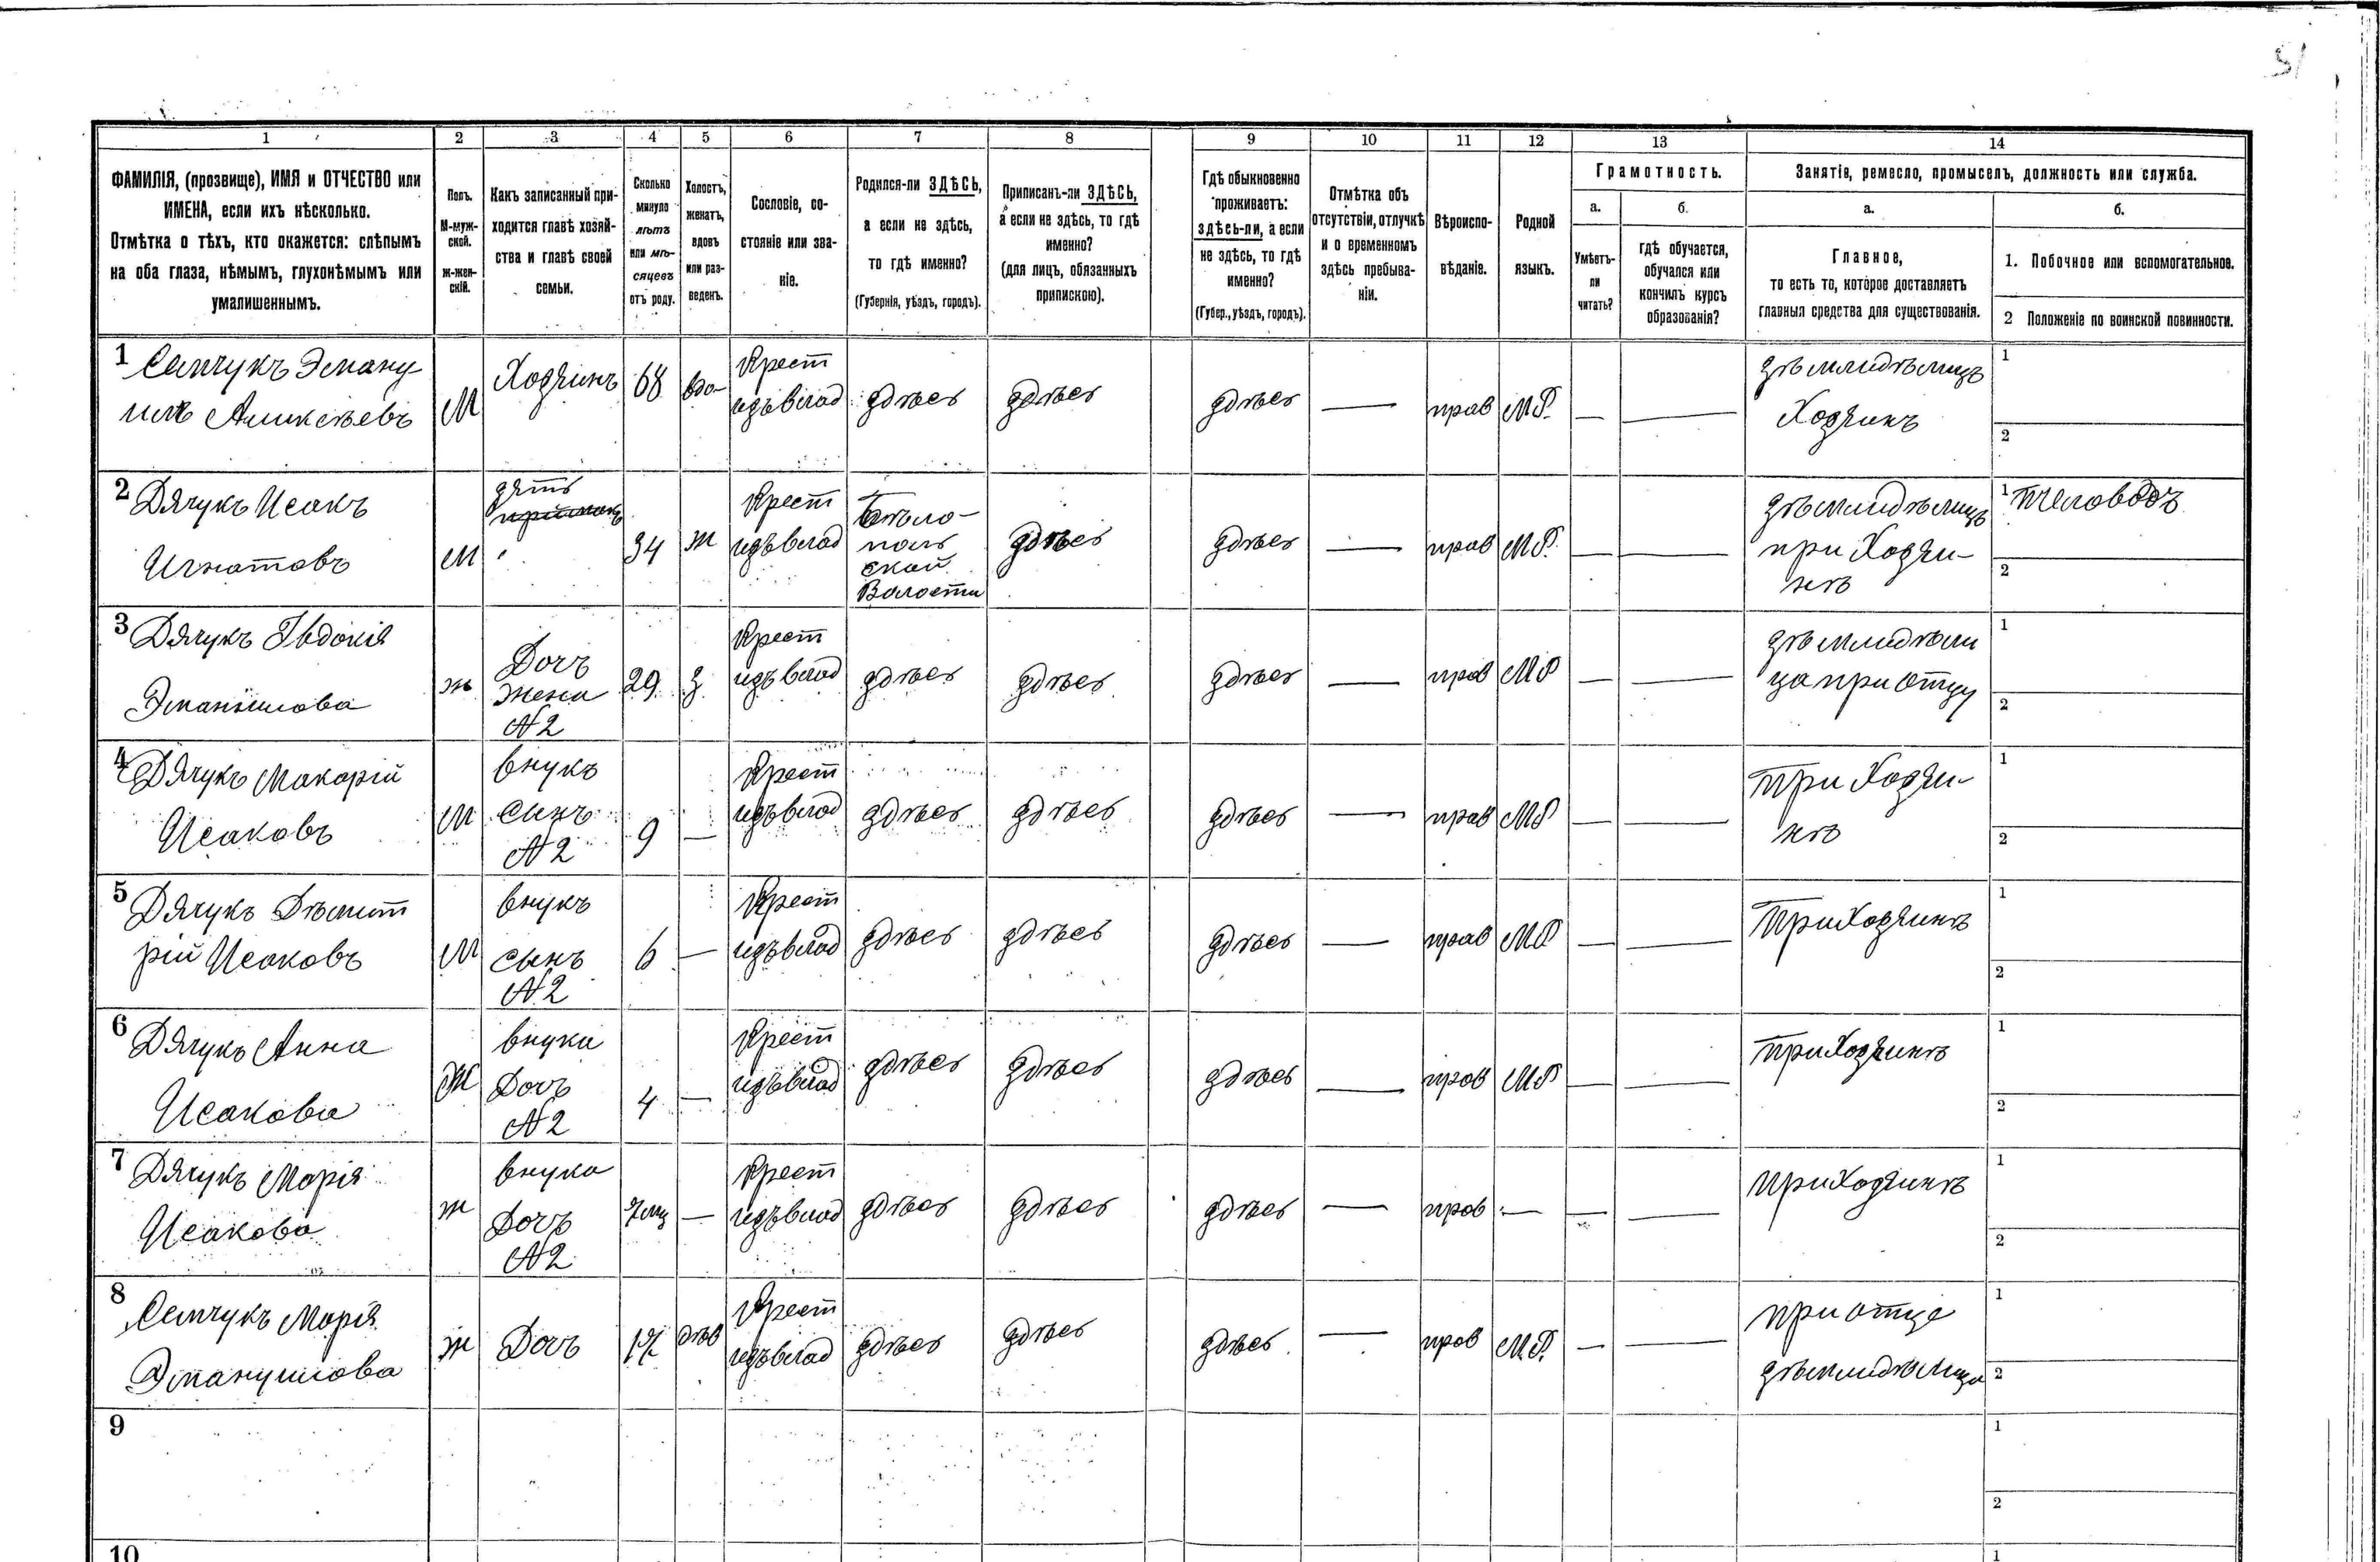 51
1 2 3 4 5 6 7 8 9 10 11 12 13 14
ФАМИЛІЯ, (прозвище), ИМЯ и ОТЧЕСТВО или
ИМЕНА, если ихъ нѣсколько.
Отмѣтка о тѣхъ, кто окажется: слѣпымъ
на оба глаза, нѣмымъ, глухонѣмымъ или
умалишеннымъ.
Полъ.
М-муж-
ской.
Ж-жен-
скій.
Какъ записанный при-
ходится главѣ хозяй-
ства и главѣ своей
семьи.
Сколько
минуло
лѣтъ
или мѣ-
сяцевъ
отъ роду.
Холостъ,
женатъ,
вдовъ
или раз-
веденъ.
Сословіе, со-
стояніе или зва-
ніе.
Родился-ли ЗДѢСЬ,
а если не здѣсь,
то гдѣ именно?
(Губернія, уѣздъ, городъ).
Приписанъ-ли ЗДѢСЬ,
а если не здѣсь, то гдѣ
именно?
(для лицъ, обязанныхъ
припискою).
Гдѣ обыкновенно
проживаетъ:
здѣсь-ли, а если
не здѣсь, то гдѣ
именно?
(Губер., уѣздъ, городъ).
Отмѣтка объ
отсутствіи, отлучкѣ
и о временномъ
здѣсь пребыва-
ніи.
Вѣроиспо-
вѣданіе.
Родной
языкъ.
Грамотность.
а.
Умѣетъ-
ли
читать?
б.
гдѣ обучается,
обучался или
кончилъ курсъ
образованія?
Занятіе, ремесло, промыселъ, должность или служба.
а.
Главное,
то есть то, которое доставляетъ
главныя средства для существованія.
б.
1. Побочное или вспомогательное.
2 Положеніе по воинской повинности.
1 Семчукъ Эману
илъ Аликсѣевъ
М
Хозяинъ
68
вдо-
Крест
изъ влад
здѣсь
здѣсь
здѣсь
—
прав
М.Р.
—
—
зѣмлидѣлицъ
Хозяинъ
1
2
2 Дячукъ Исакъ
Игнатовъ
М
зять
34
ж
Крест
изъ влад
поль
ской
Волости
здѣсь
здѣсь
—
прав
М.Р.
—
—
зѣмлидѣлицъ
при Хозяи-
нѣ
1 пчеловодъ
2
3 Дячукъ Івдокія
Эмануилова
ж
Дочъ
жена
N2
29
з
Крест
изъ влад
здѣсь
здѣсь
здѣсь
—
прав
М.Р
—
—
зѣмлидѣли
ца при отцу
1
2
4 Дячукъ Макарій
Исаковъ
М
внукъ
сынъ
N2
9
—
Крест
изъ влад
здѣсь
здѣсь
здѣсь
—
прав
М.Р
—
—
При Хозяи-
нѣ
1
2
5 Дячукъ Дѣмит
рій Исаковъ
М
внукъ
сынъ
N2
6
—
Крест
изъ влад
здѣсь
здѣсь
здѣсь
—
прав
М.Р
—
—
При Хозяинѣ
1
2
6 Дячукъ Анна
Исакова
Ж
внука
Дочъ
N2
4
—
Крест
изъ влад
здѣсь
здѣсь
здѣсь
—
прав
М.Р
—
—
при Хозяинѣ
1
2
7 Дячукъ Марія
Исакова
ж
внука
Дочъ
N2
7 мц
—
Крест
изъ влад
здѣсь
здѣсь
здѣсь
—
прав
—
—
—
при Хозяинѣ
1
2
8 Семчукъ Марія
Эмануилова
ж
Дочъ
17
дѣв
Крест
изъ влад
здѣсь
здѣсь
здѣсь
—
прав
М.Р.
—
—
при отце
зѣмлидѣлица
1
2
9
1
2
10
1